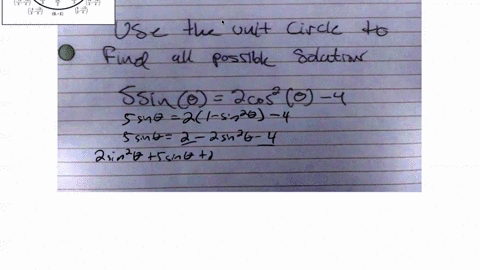 Use the unit Circle to
Find all possible Solution
5sin(θ) = 2cos²(θ) - 4
5sinθ = 2(1 - sin²θ) - 4
5sinθ = 2 - 2sin²θ - 4
2sin²θ + 5sinθ +